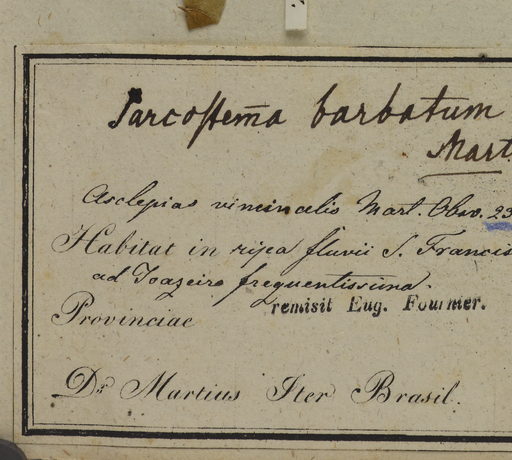 Sarcostem̄a barbatum
Mart.
Asclepias viminalis Mart. Obsv. 23
Habitat in ripa fluvii S. Francis
ad Joazeiro frequentissima.
remisit Eug. Fournier.
Provinciae
Dr. Martius Iter Brasil.